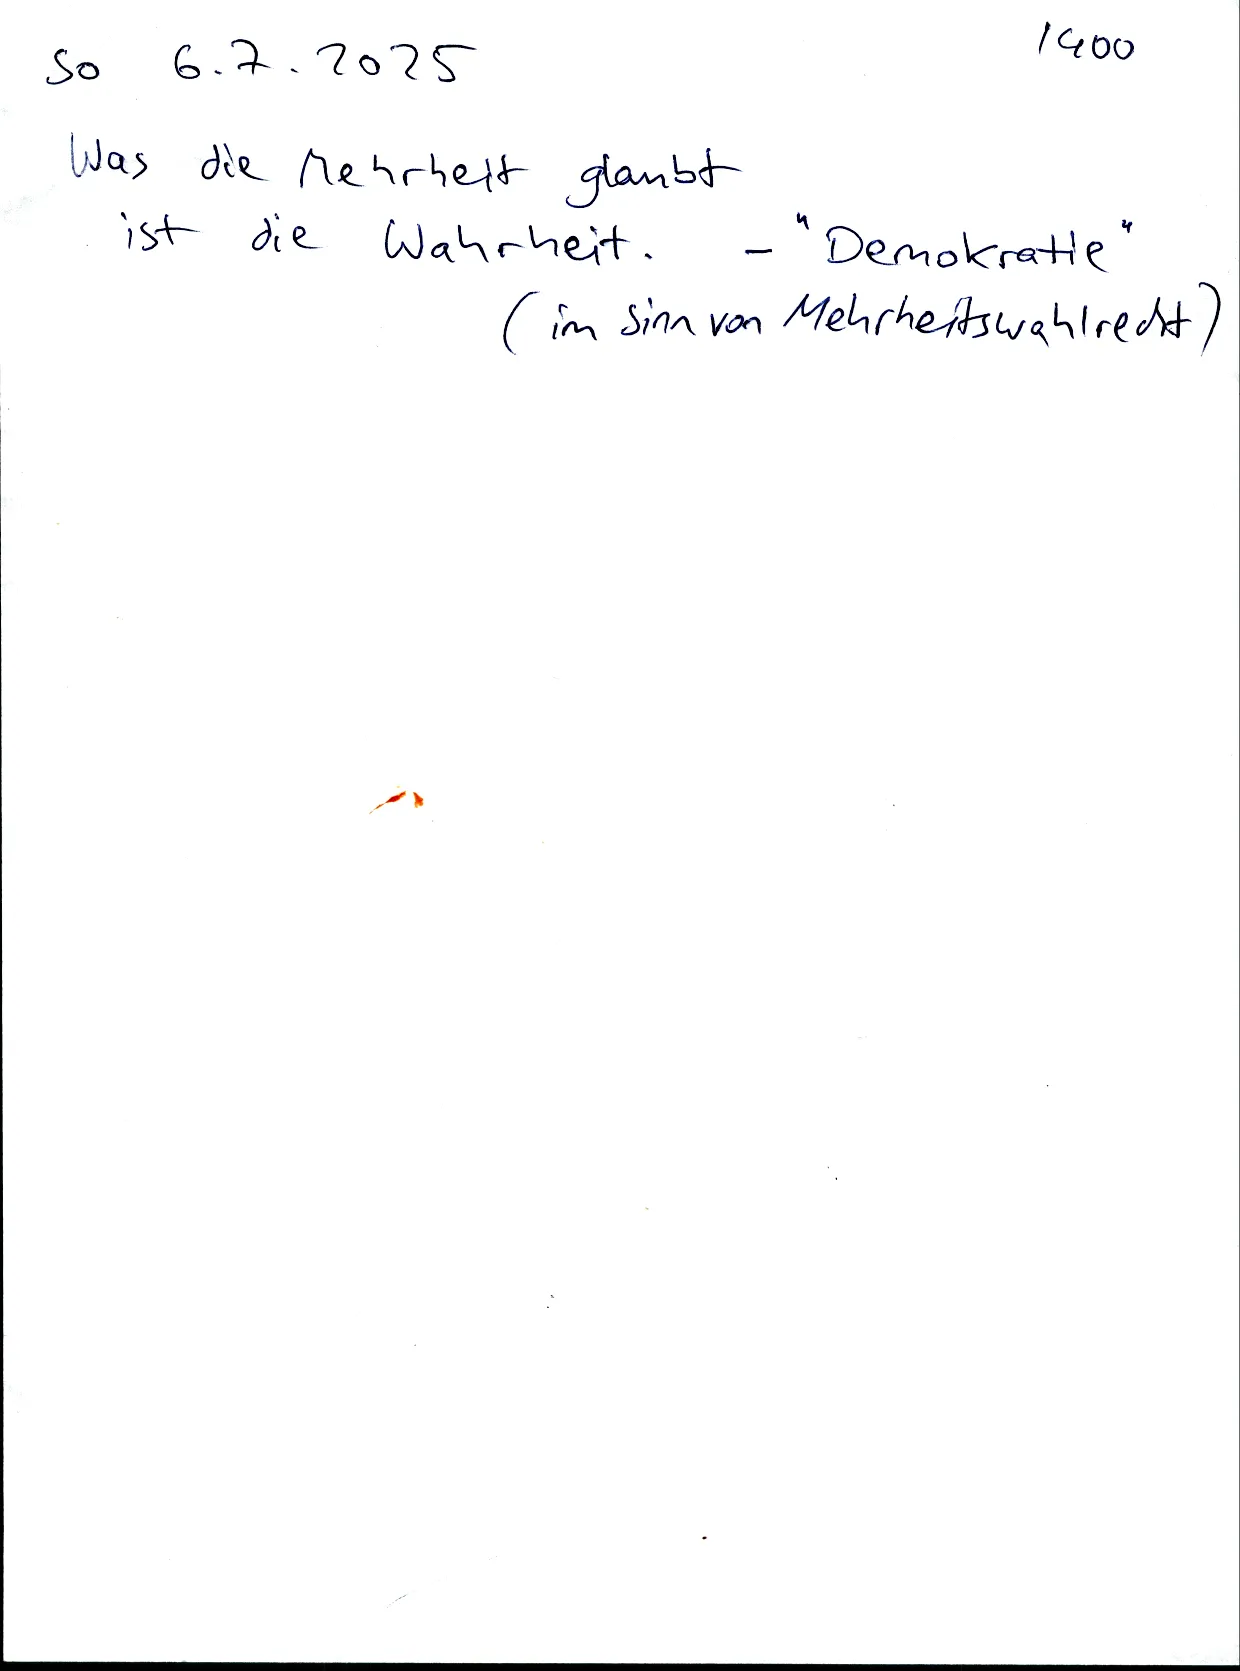 So 6.7.2025
1400
Was die Mehrheit glaubt
ist die Wahrheit. - "Demokratie"
(im Sinn von Mehrheitswahlrecht)